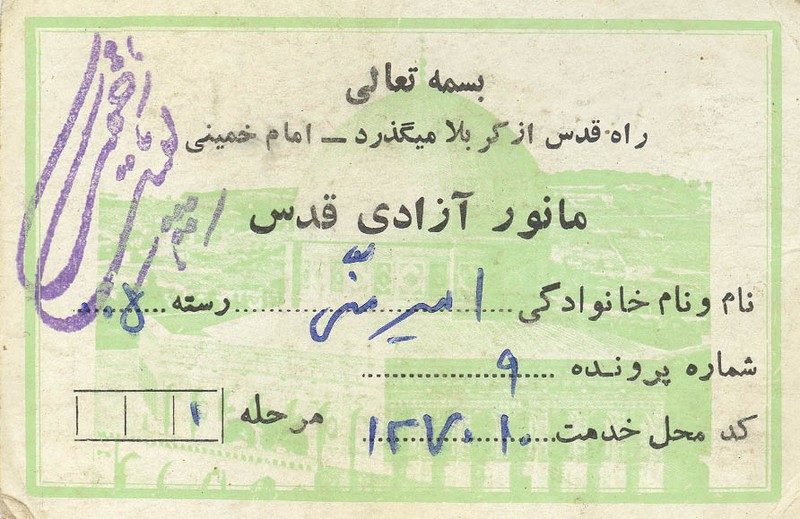 بسمه تعالی
راه قدس از کربلا میگذرد ــ امام خمینی
مانور آزادی قدس
نام و نام خانوادگی امیر رسته ۵
شماره پرونده ۹
کد محل خدمت ۱۳۷۰۱۰ مرحله ۱